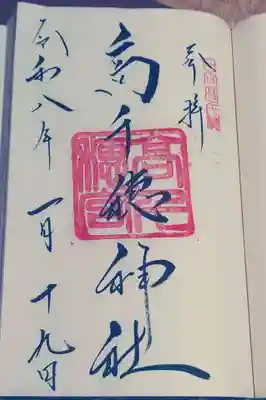 奉拝
高千穂神社
令和八年一月十九日